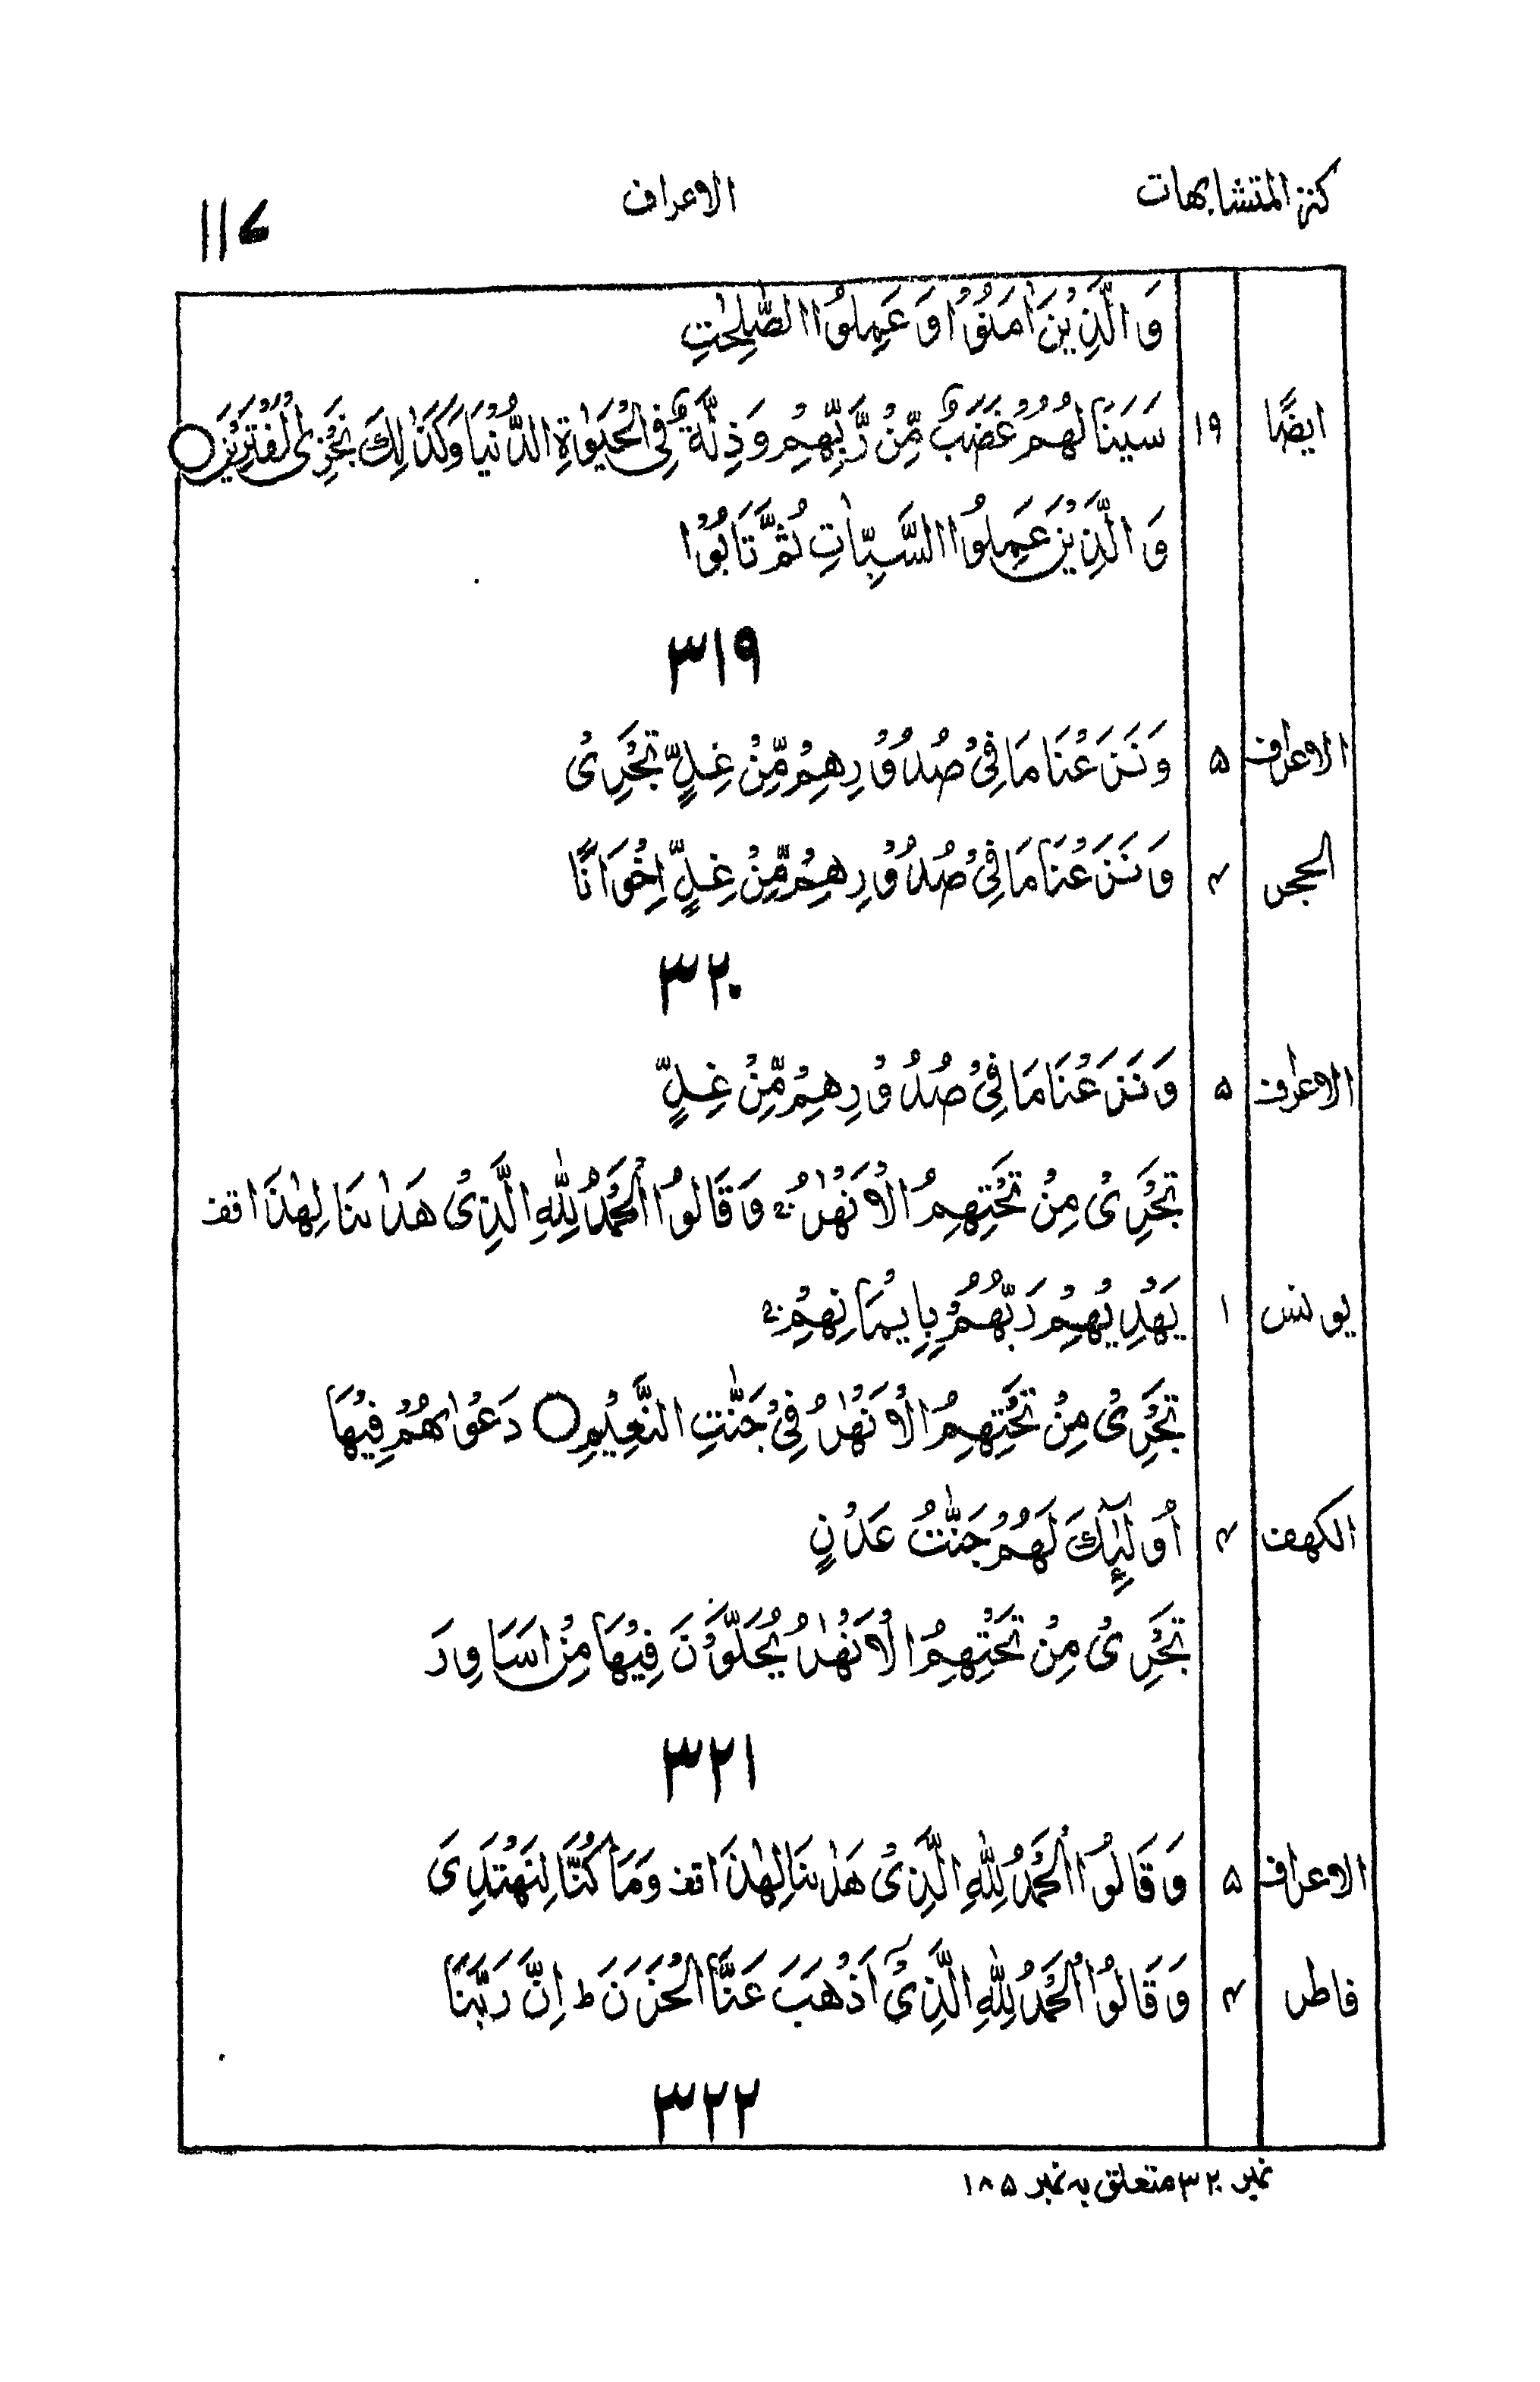 كنز المتشابهات الاعراف ١١٧
وَالَّذِيْنَ اٰمَنُوْا وَعَمِلُوا الصّٰلِحٰتِ
ايضًا ١٩ سَيَنَالُهُمْ غَضَبٌ مِّنْ رَّبِّهِمْ وَذِلَّةٌ فِي الْحَيٰوةِ الدُّنْيَا وَكَذٰلِكَ نَجْزِي الْمُفْتَرِيْنَ ○
وَالَّذِيْنَ عَمِلُوا السَّيِّاٰتِ ثُمَّ تَابُوْا
٣١٩
الاعراف ۵ وَنَزَعْنَا مَا فِيْ صُدُوْرِهِمْ مِّنْ غِلٍّ تَجْرِيْ
الحجر ۴ وَنَزَعْنَا مَا فِيْ صُدُوْرِهِمْ مِّنْ غِلٍّ اِخْوَانًا
٣٢٠
الاعراف ۵ وَنَزَعْنَا مَا فِيْ صُدُوْرِهِمْ مِّنْ غِلٍّ
تَجْرِيْ مِنْ تَحْتِهِمُ الْاَنْهٰرُ ۚ وَقَالُوا الْحَمْدُ لِلّٰهِ الَّذِيْ هَدٰىنَا لِهٰذَا قف
يونس ١ يَهْدِيْهِمْ رَبُّهُمْ بِاِيْمَانِهِمْ ۚ
تَجْرِيْ مِنْ تَحْتِهِمُ الْاَنْهٰرُ فِيْ جَنّٰتِ النَّعِيْمِ ○ دَعْوٰىهُمْ فِيْهَا
الكهف ۴ اُولٰٓئِكَ لَهُمْ جَنّٰتُ عَدْنٍ
تَجْرِيْ مِنْ تَحْتِهِمُ الْاَنْهٰرُ يُحَلَّوْنَ فِيْهَا مِنْ اَسَاوِرَ
٣٢١
الاعراف ۵ وَقَالُوا الْحَمْدُ لِلّٰهِ الَّذِيْ هَدٰىنَا لِهٰذَا قف وَمَا كُنَّا لِنَهْتَدِيَ
فاطر ۴ وَقَالُوا الْحَمْدُ لِلّٰهِ الَّذِيْٓ اَذْهَبَ عَنَّا الْحَزَنَ ط اِنَّ رَبَّنَا
٣٢٢
نمبر ٣٢٠ متعلق بہ نمبر ١٨۵